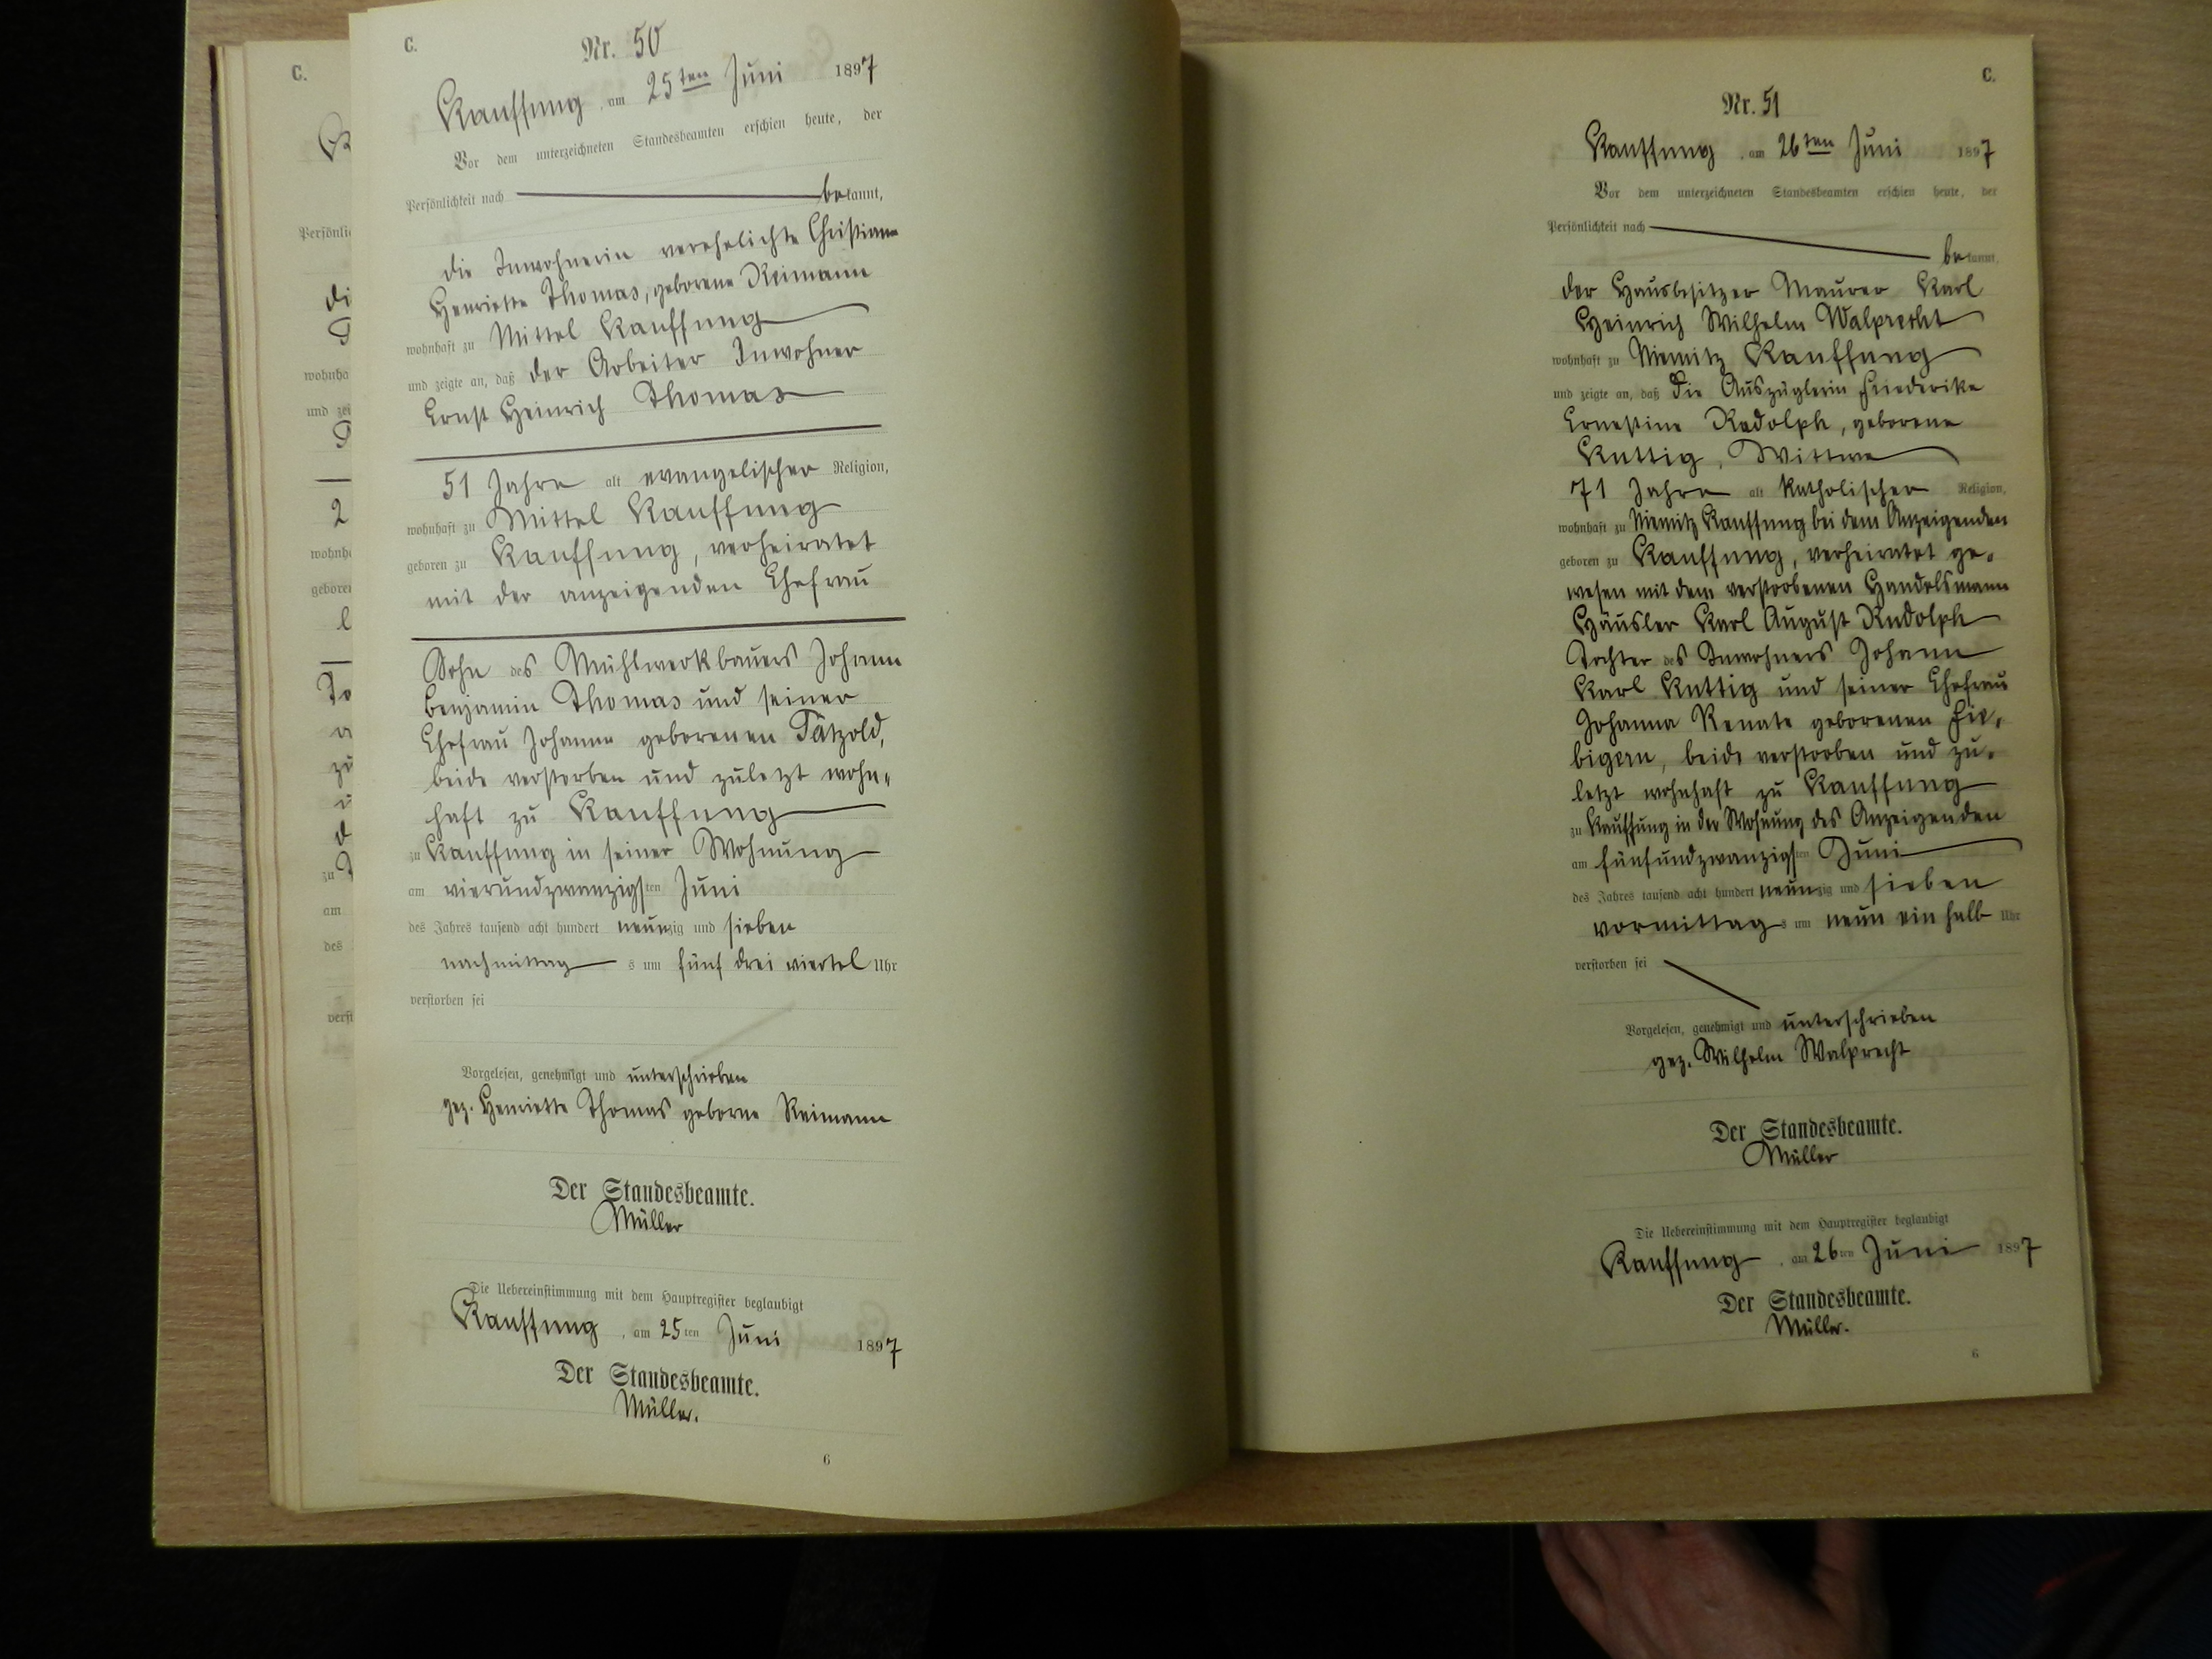 C.
Nr. 50
Kauffung, am 25ten Juni 1897
Vor dem unterzeichneten Standesbeamten erschien heute, der
Persönlichkeit nach bekannt,
die Inwohnerin verehelichte Christiane
Henriette Thomas, geborene Reimann
wohnhaft zu Mittel Kauffung
und zeigte an, daß der Arbeiter Inwohner
Ernst Heinrich Thomas
51 Jahre alt evangelischer Religion,
wohnhaft zu Mittel Kauffung
geboren zu Kauffung, verheiratet
mit der anzeigenden Ehefrau
Sohn des Mühlwerkbauers Johann
Benjamin Thomas und seiner
Ehefrau Johanne geborenen Pätzold,
beide verstorben und zuletzt wohn-
haft zu Kauffung
zu Kauffung in seiner Wohnung
am vierundzwanzigsten Juni
des Jahres tausend acht hundert neunzig und sieben
nachmittags um fünf drei viertel Uhr
verstorben sei
Vorgelesen, genehmigt und unterschrieben
gez. Henriette Thomas geborne Reimann
Der Standesbeamte.
Müller
Die Uebereinstimmung mit dem Hauptregister beglaubigt
Kauffung, am 25ten Juni 1897
Der Standesbeamte.
Müller.
6
C.
Nr. 51
Kauffung, am 26ten Juni 1897
Vor dem unterzeichneten Standesbeamten erschien heute, der
Persönlichkeit nach
bekannt,
der Hausbesitzer Maurer Karl
Heinrich Wilhelm Walprecht
wohnhaft zu Niemitz Kauffung
und zeigte an, daß die Auszüglerin Friederike
Ernestine Rudolph, geborene
Kuttig, Wittwe
71 Jahre alt katholischer Religion,
wohnhaft zu Niemitz Kauffung bei dem Anzeigenden
geboren zu Kauffung, verheiratet ge-
wesen mit dem verstorbenen Handelsmann
Häusler Karl August Rudolph
Tochter des Inwohners Johann
Karl Kuttig und seiner Ehefrau
Johanna Renate geborenen Fie-
bigern, beide verstorben und zu-
letzt wohnhaft zu Kauffung
zu Kauffung in der Wohnung des Anzeigenden
am fünfundzwanzigsten Juni
des Jahres tausend acht hundert neunzig und sieben
vormittags um neun ein halb Uhr
verstorben sei
Vorgelesen, genehmigt und unterschrieben
gez. Wilhelm Walprecht
Der Standesbeamte.
Müller
Die Uebereinstimmung mit dem Hauptregister beglaubigt
Kauffung, am 26ten Juni 1897
Der Standesbeamte.
Müller.
6